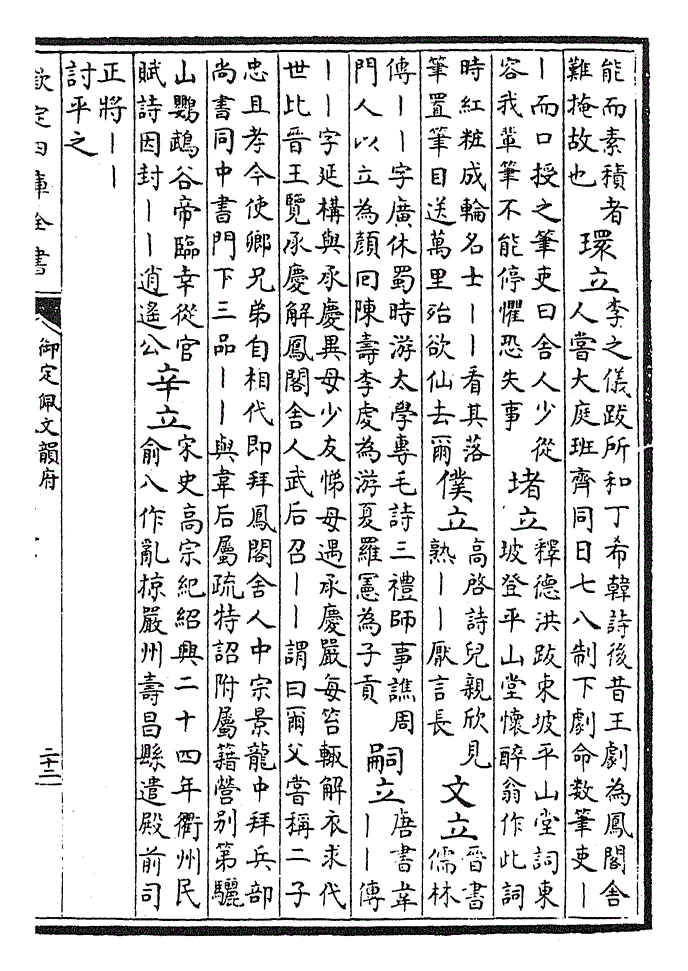 能而素積者
難掩故也
環立
李之儀跋所和丁希韓詩後昔王劇為鳳閣舍
人嘗大庭班齊同日七八制下劇命数筆吏丨
丨而口授之筆吏曰舍人少從
容我輩筆不能停懼恐失事
堵立
釋德洪跋東坡平山堂詞東
坡登平山堂懷醉翁作此詞
時紅粧成輪名士丨丨看其落
筆置筆目送萬里殆欲仙去爾
僕立
高啓詩兒親欣見
熟丨丨厭言長
文立
晉書
儒林
傳丨丨字廣休蜀時游太學專毛詩三禮師事譙周
門人以立為顔回陳壽李虔為游夏羅憲為子貢
嗣立
唐書韋
丨丨傳
丨丨字延構與承慶異母少友悌母遇承慶嚴每笞輒解衣求代
世比晉王覽承慶解鳳閣舍人武后召丨丨謂曰爾父嘗稱二子
忠且孝今使卿兄弟自相代即拜鳳閣舍人中宗景龍中拜兵部
尚書同中書門下三品丨丨與韋后屬疏特詔附屬籍營别第驪
山鸚鵡谷帝臨幸從官
賦詩因封丨丨逍遙公
辛立
宋史高宗紀紹興二十四年衢州民
俞八作亂掠嚴州壽昌縣遣殿前司
正將丨丨
討平之
欽定四庫全書
御定佩文韻府
二十二